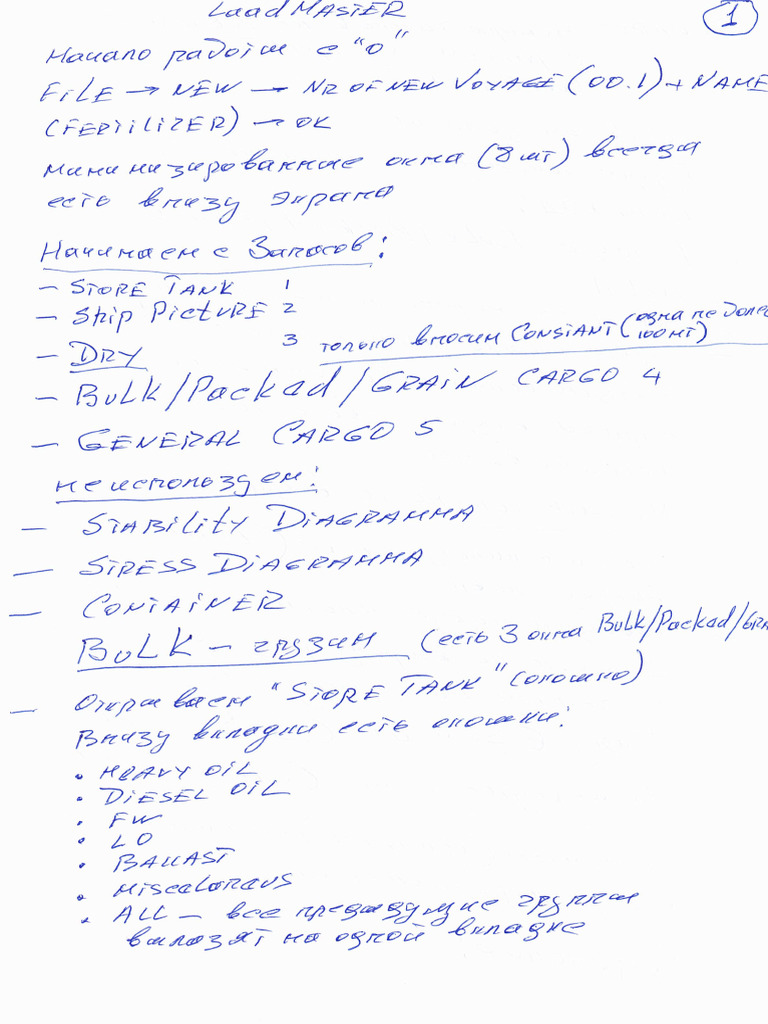 LoadMASTER
1
Начало работы с "0"
FILE → NEW → NR OF NEW VOYAGE (00.1) + NAME
(FERTILIZER) → OK
минимизированные окна (8 шт) всегда
есть внизу экрана
Начинаем с Запасов:
- STORE TANK 1
- Ship PICTURE 2
- DRY 3 только вносим CONSTANT (одна не более 100 мт)
- BULK/Packad/GRAIN CARGO 4
- GENERAL CARGO 5
не используем:
- STABILITY DIAGRAMMA
- STRESS DIAGRAMMA
- CONTAINER
BULK - грузим (есть 3 окна BULK/Packad/GRA
- Открываем "STORE TANK" (окошко)
Внизу вкладки есть окошки:
• HEAVY OIL
• DIESEL OIL
• FW
• LO
• BALLAST
• Miscelaneous
• ALL - все предыдущие группы
вылозят на одной вкладке